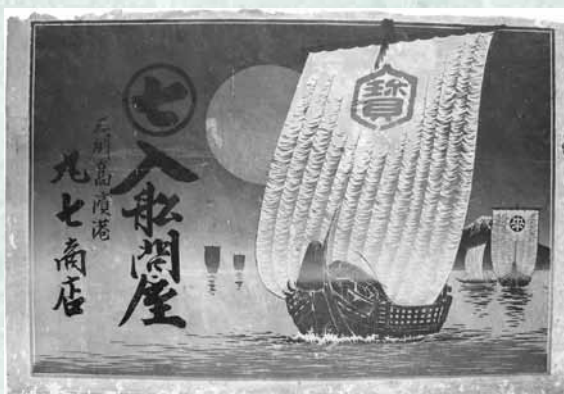 七
入船問屋
高濱港
丸七商店
寳